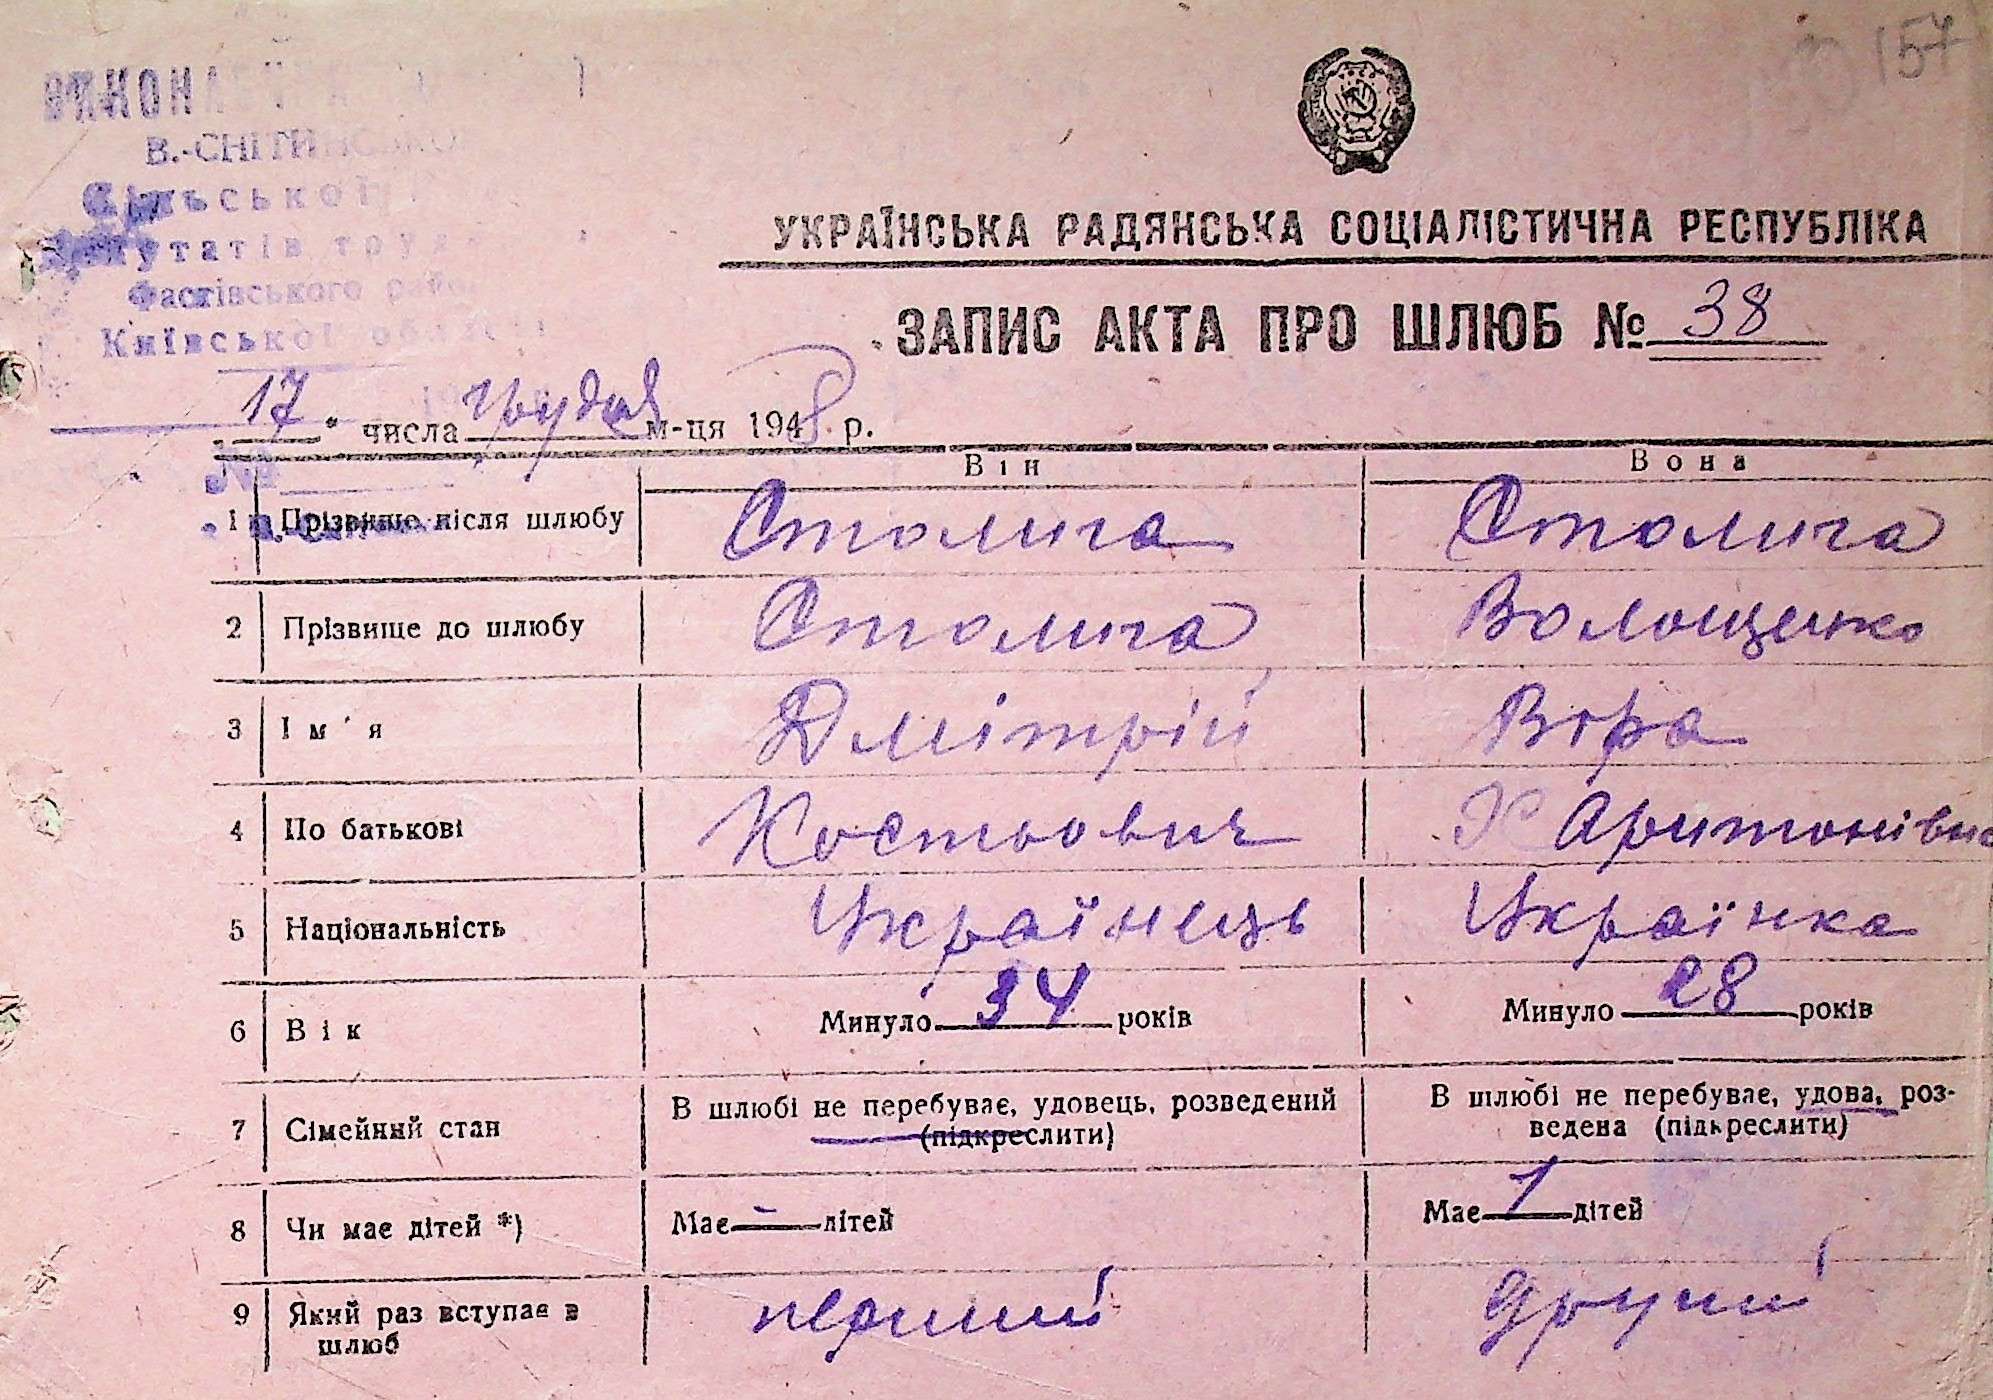 157
В.-СНІТИНСЬКО
Сільської
Депутатів труд
Фастівського райо
Київської області
УКРАЇНСЬКА РАДЯНСЬКА СОЦІАЛІСТИЧНА РЕСПУБЛІКА
ЗАПИС АКТА ПРО ШЛЮБ № 38
17 " числа грудня м-ця 1948 р.
№
Він Вона
1 Прізвище після шлюбу Столига Столига
2 Прізвище до шлюбу Столига Волощенко
3 Ім'я Дмітрій Віра
4 По батькові Костьович Харитонівна
5 Національність Українець Українка
6 Вік Минуло 34 років Минуло 28 років
7 Сімейний стан В шлюбі не перебуває, удовець, розведений (підкреслити) В шлюбі не перебуває, удова, роз-
ведена (підкреслити)
8 Чи має дітей *) Має - дітей Має 1 дітей
9 Який раз вступає в шлюб перший другий